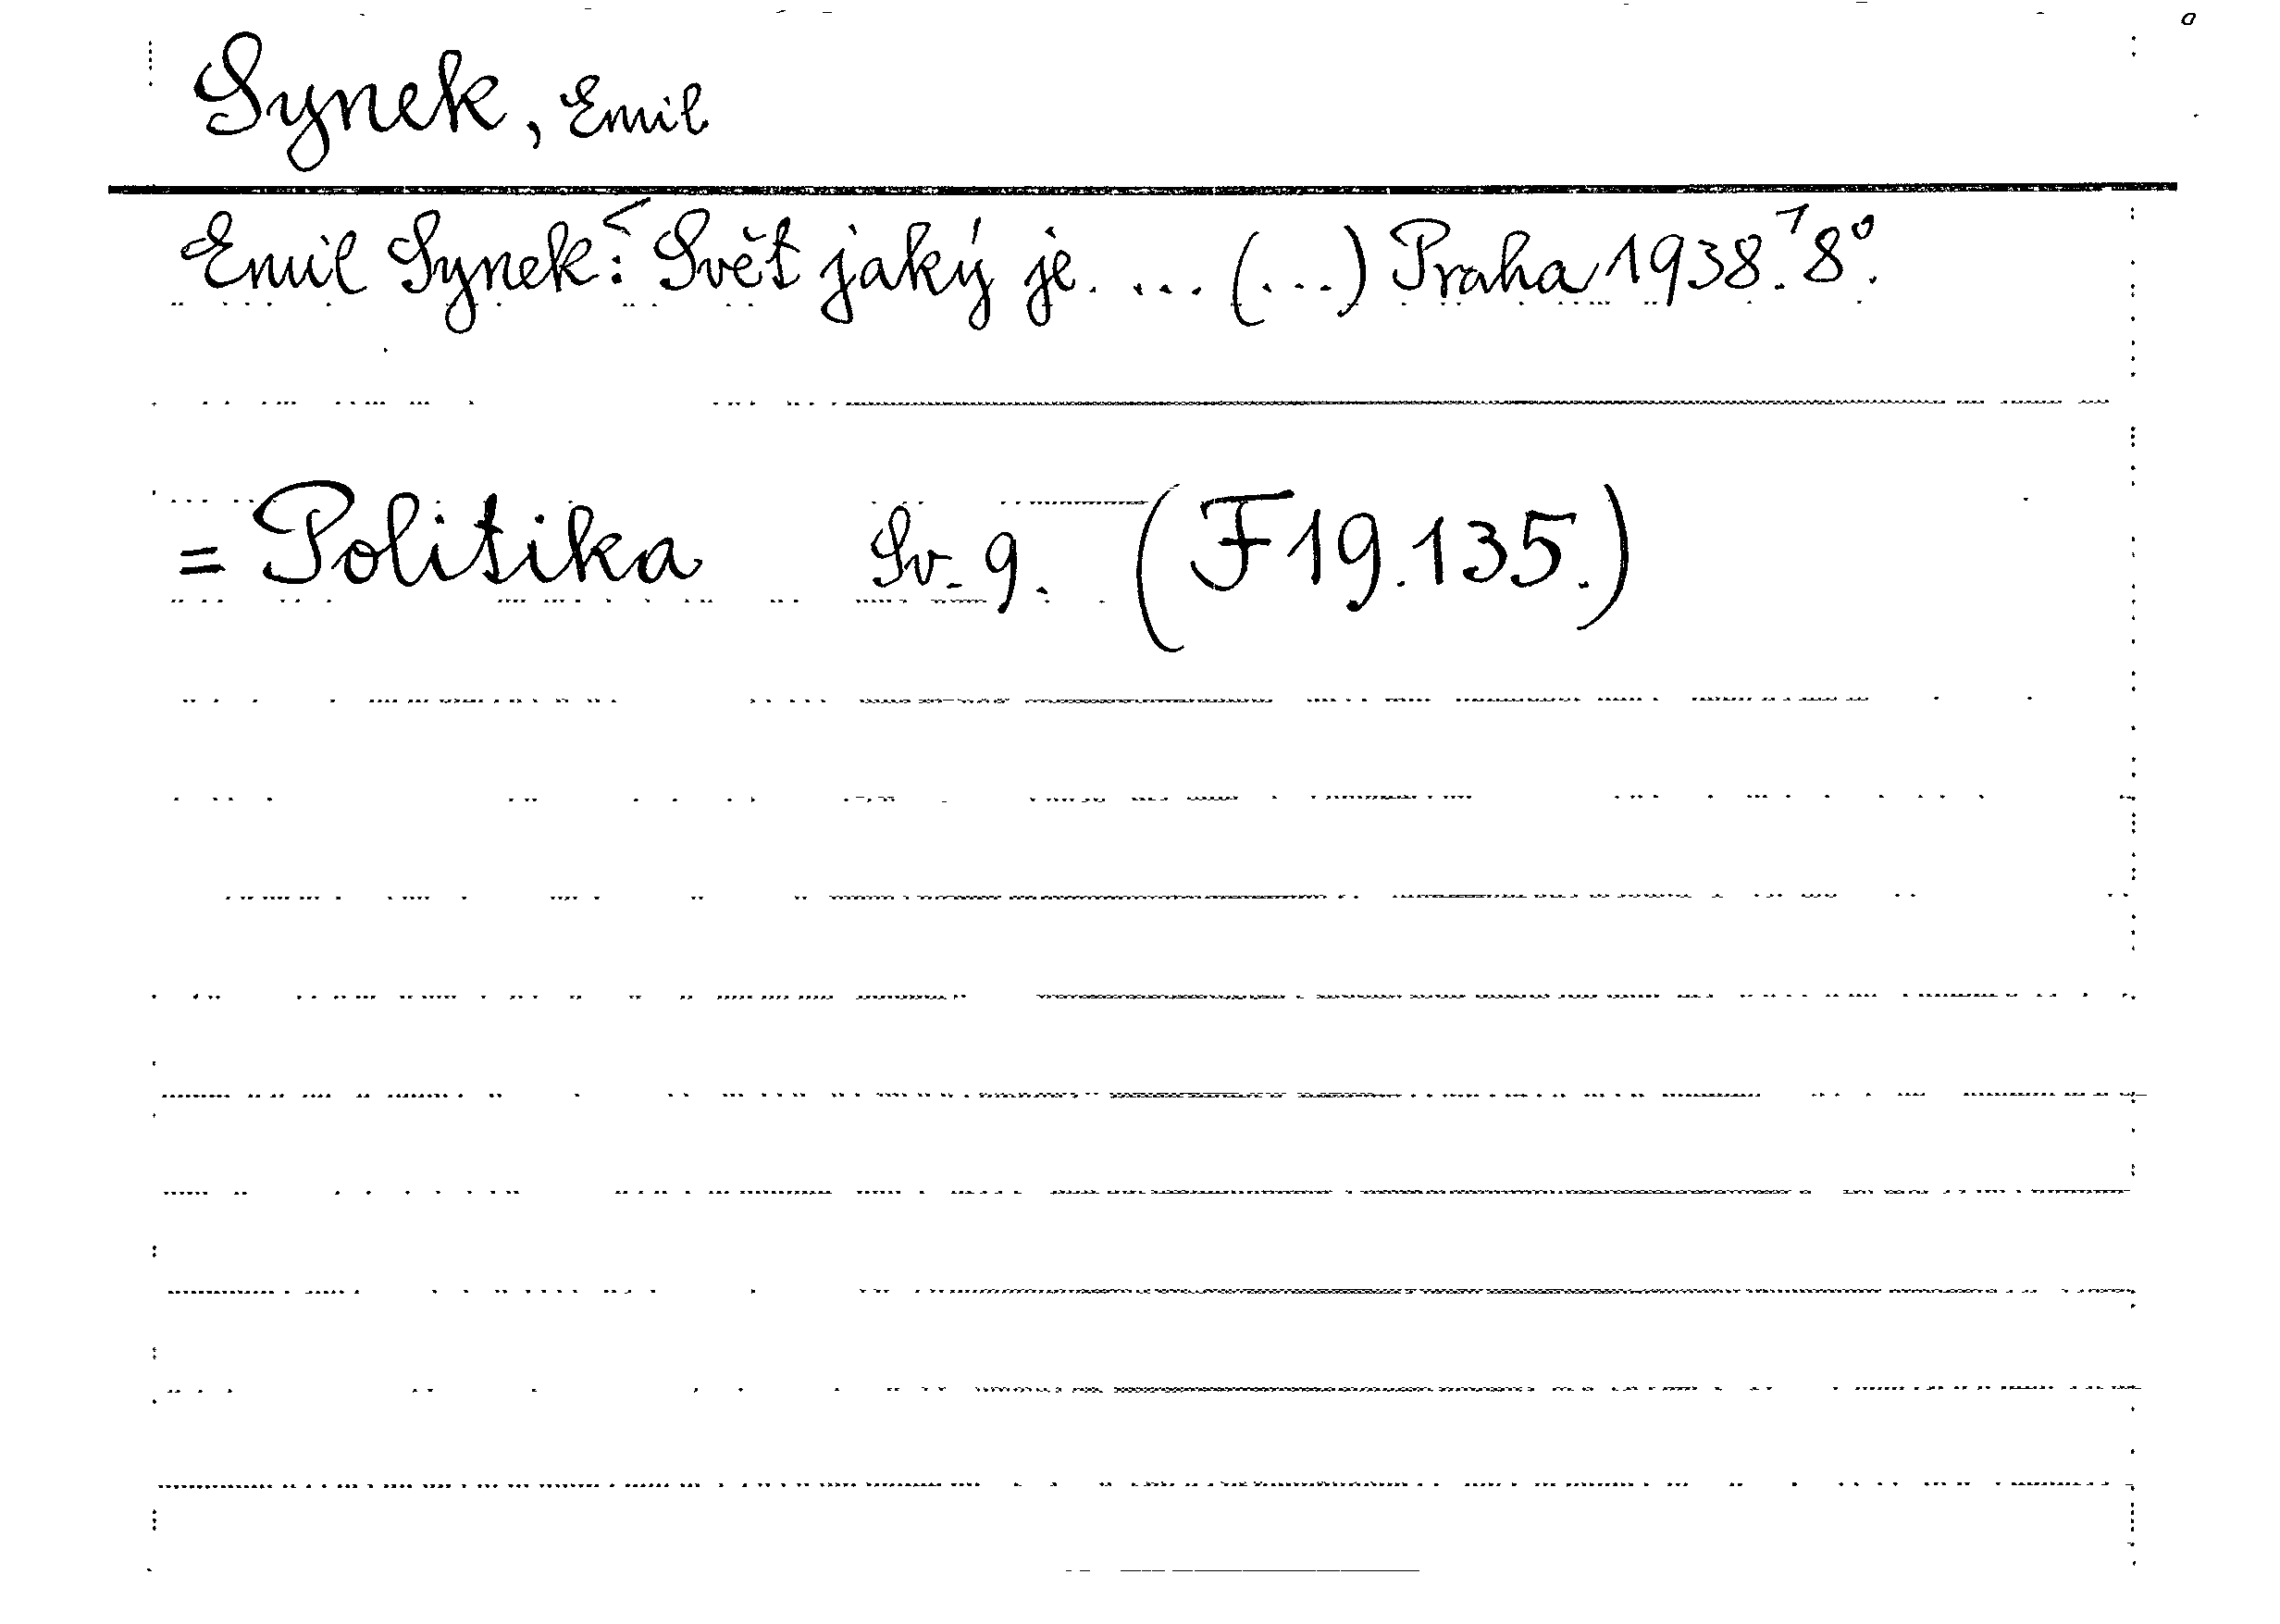 Synek, Emil
Emil Synek: Svět jaký je. ... (...) Praha 1938. 8°.
= Politika Sv. 9. (F 19.135.)